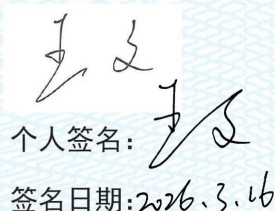 王文
个人签名:王文
签名日期:2026.3.16